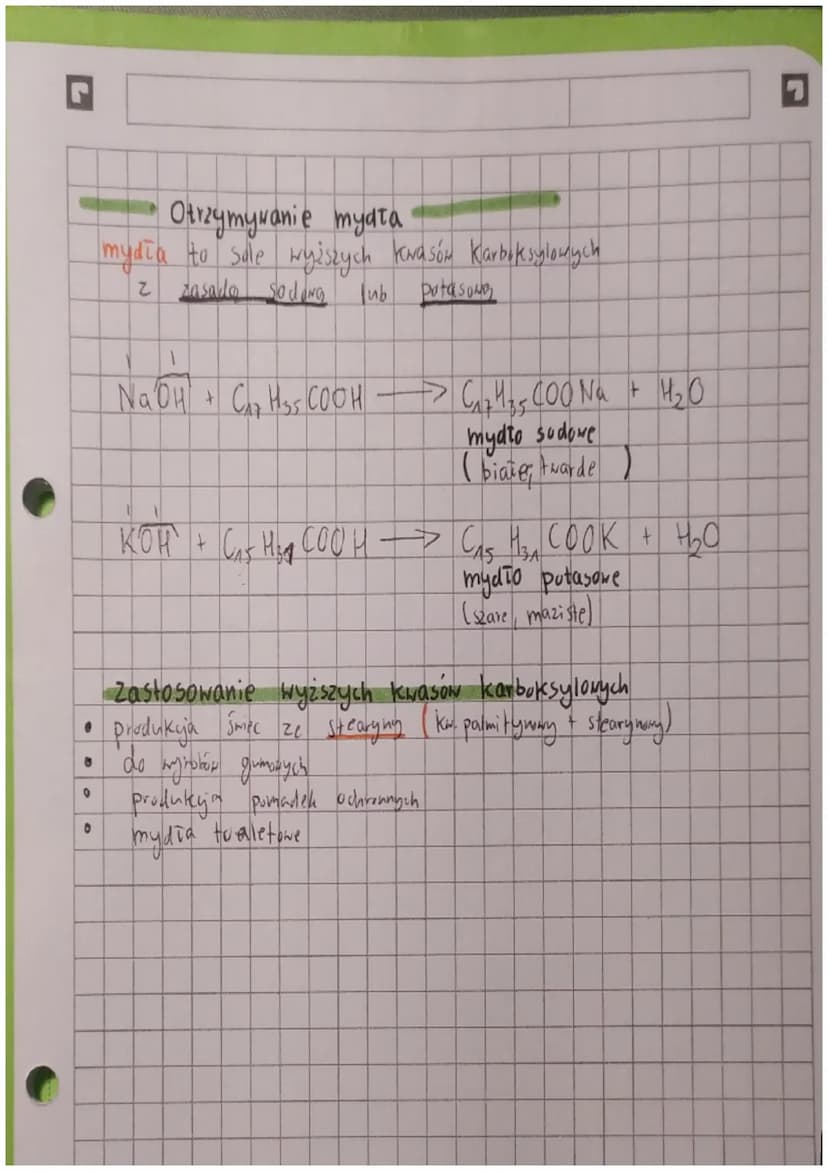 Otrzymywanie mydła
mydła to sole wyższych kwasów karboksylowych
z zasadą sodową lub potasową
I I
NaOH + C₁₇H₃₅COOH → C₁₇H₃₅COONa + H₂O
mydło sodowe
(białe, twarde)
I I
KOH + C₁₅H₃₁COOH → C₁₅H₃₁COOK + H₂O
mydło potasowe
(szare, maziste)
Zastosowanie wyższych kwasów karboksylowych
• produkcja świec ze stearyny (kw. palmitynowy + stearynowy)
• do wyrobów gumowych
• produkcja pomadek ochronnych
• mydła toaletowe